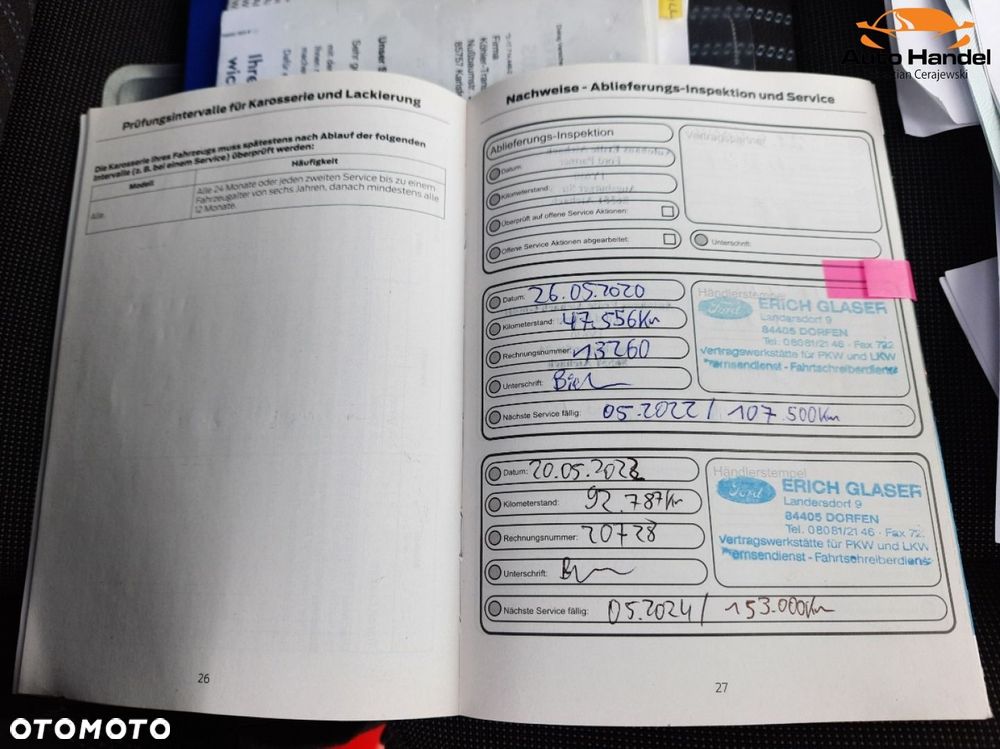 Auto Handel
ian Cerajewski
Firma
85757 Karls
Prüfungsintervalle für Karosserie und Lackierung
Die Karosserie Ihres Fahrzeugs muss spätestens nach Ablauf der folgenden
Intervalle (z. B. bei einem Service) überprüft werden:
Modell
Häufigkeit
Alle.
Alle 24 Monate oder jeden zweiten Service bis zu einem
Fahrzeugalter von sechs Jahren, danach mindestens alle
12 Monate.
26
Nachweise - Ablieferungs-Inspektion und Service
Ablieferungs-Inspektion
Vertragspartner
Datum:
Kilometerstand:
Überprüft auf offene Service Aktionen:
Offene Service Aktionen abgearbeitet:
Unterschrift:
Datum: 26.05.2020
Kilometerstand: 47.556Km
Rechnungsnummer: 13260
Unterschrift:
Nächste Service fällig: 05.2022 / 107.500Km
Händlerstempel
Ford
ERICH GLASER
Landersdorf 9
84405 DORFEN
Tel. 08081/21 46 · Fax 722
Vertragswerkstätte für PKW und LKW
Bremsendienst - Fahrtschreiberdienst
Datum: 20.05.2022
Kilometerstand: 92.787Km
Rechnungsnummer: 20728
Unterschrift:
Nächste Service fällig: 05.2024 / 153.000Km
Händlerstempel
Ford
ERICH GLASER
Landersdorf 9
84405 DORFEN
Tel. 08081/21 46 · Fax 72
Vertragswerkstätte für PKW und LKW
Bremsendienst - Fahrtschreiberdienst
27
OTOMOTO